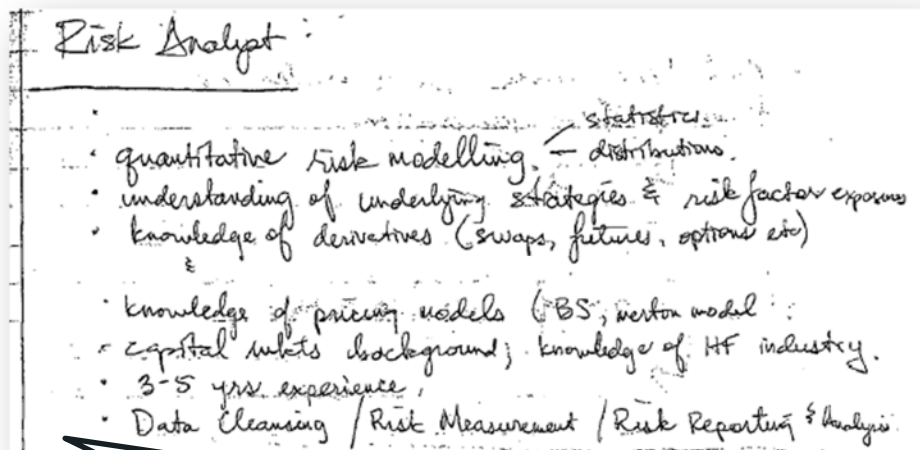 Risk Analyst :
statistics.
• quantitative risk modelling. — distributions.
• understanding of underlying strategies & risk factor exposures
• knowledge of derivatives (swaps, futures, options etc)
&
• knowledge of pricing models (BS, merton model
• capital mkts background; knowledge of HF industry.
• 3-5 yrs experience,
• Data Cleansing / Risk Measurement / Risk Reporting & Analysis